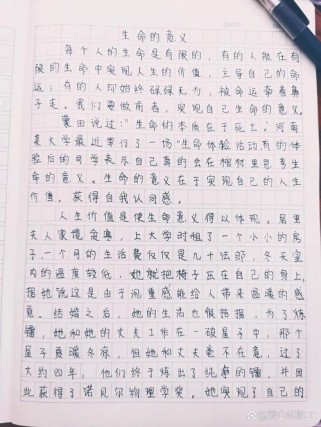 生命的意义
每个人的生命是有限的，有的人能在有
限的生命中实现人生的价值，主导自己的命
运；有的人却始终碌碌无为，被命运带着鼻
子走。我们要做前者，实现自己生命的意义。
蒙田说过：“生命的本质在于死亡。”河南
某大学最近举行了一场“生命体验活动有的体
验后的同学表示自己真的会在棺材里思考生
命的意义。生命的意义在于实现自己的人生
价值，获得自我认同感。
人生价值是使生命意义得以体现。居里
夫人家境贫寒，上大学时租了一个小小的房
子一个月的生活费仅仅是几十法郎，冬天室
内的温度较低，她就把椅子压在自己的身上，
据她说这是由于沉重感能给人带来温暖的感
觉。结婚之后，她的生活也很拮据，为了炼
镭，她和她的丈夫工作在一破屋子中，那个
屋子夏暖冬凉，但她和丈夫毫不在意，过了
大约四年，他们终于炼出了纯净的镭，并因
此获得了诺贝尔物理学奖。她实现了自己的